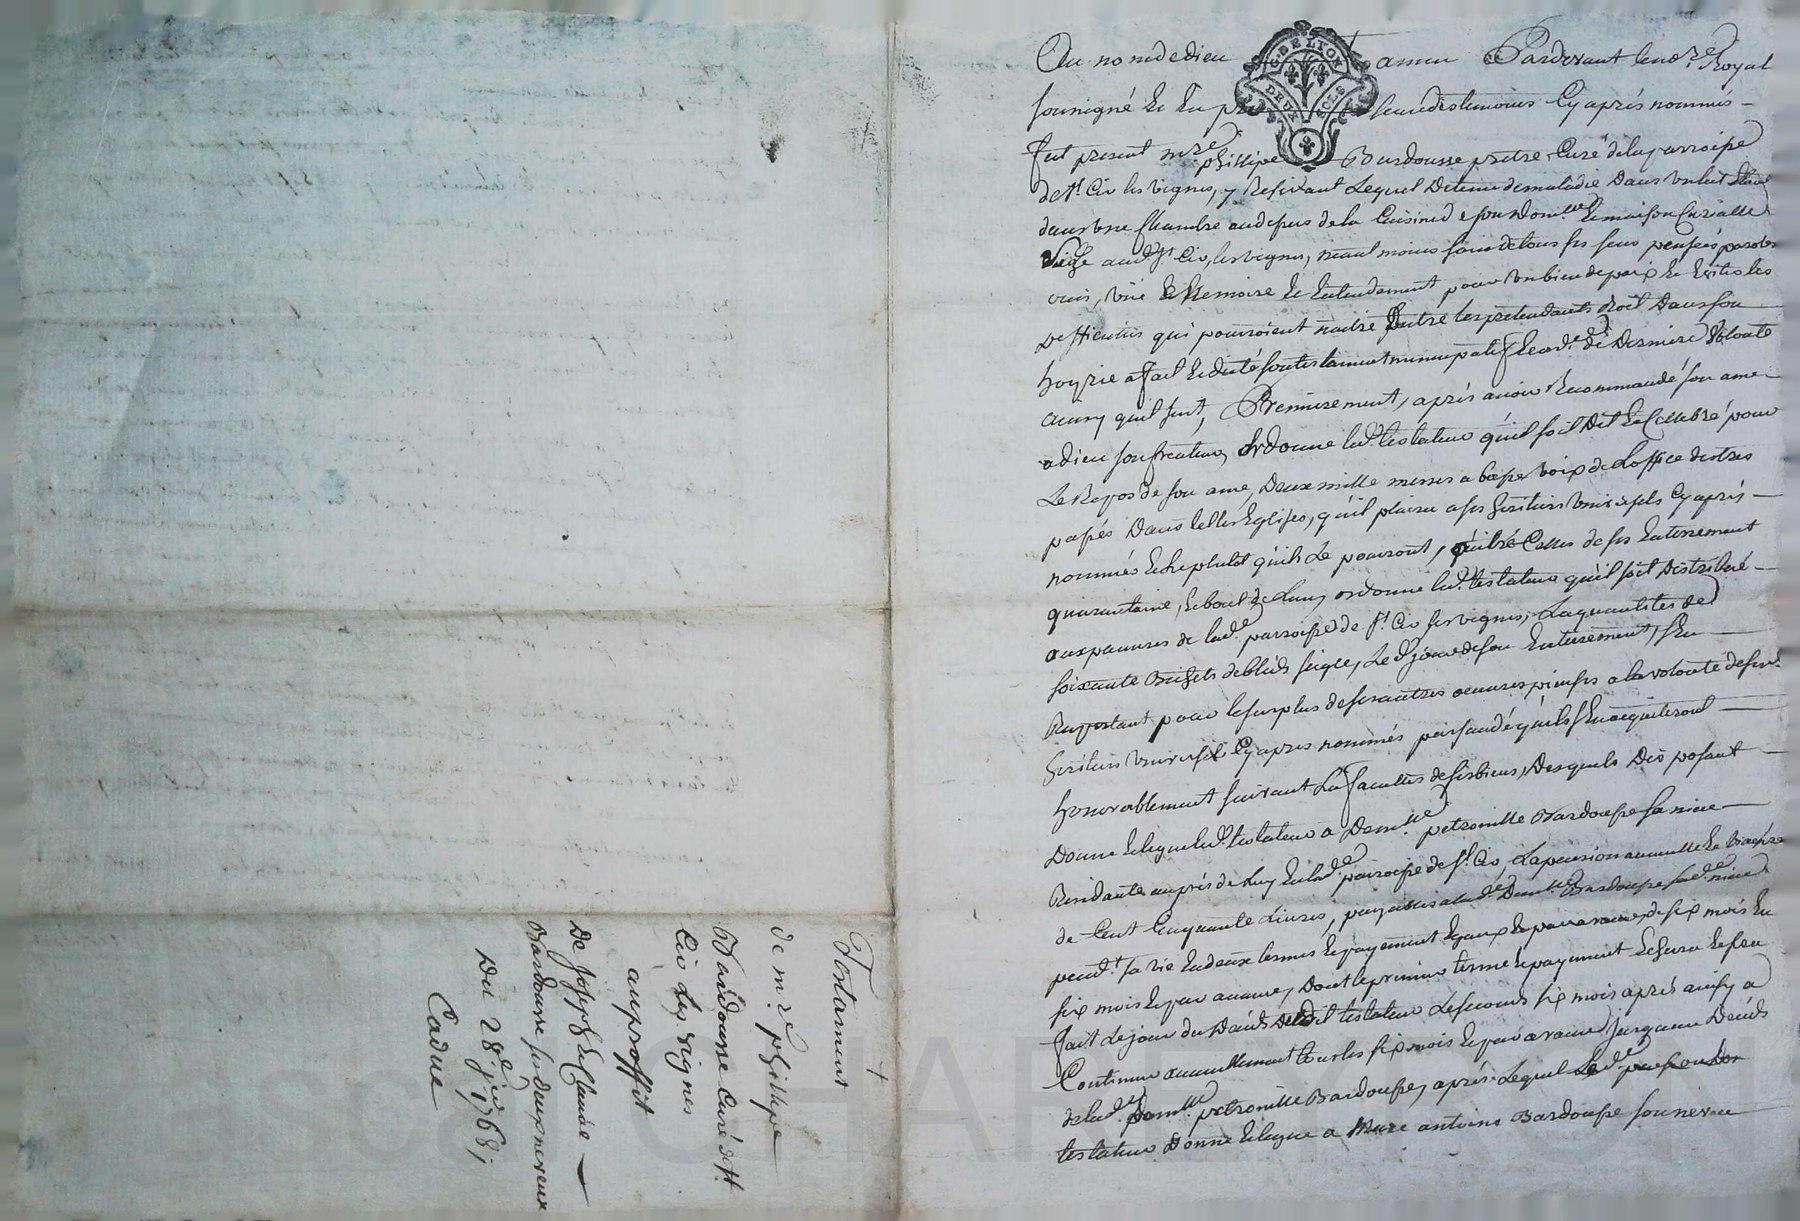 Testament
de mre philippe
Bardousse curé de St.
Cir les vignes
au proffit
De Joseph et Claude
Bardousse ses deux neveux
Du 28e 1768
Cadne
G. DE LYON
DEUX SOLS
Au nom de dieu amen Pardevant le nore Royal
soussigné et en presence des temoins cy après nommés
fut present mre philipe Bardousse prêtre curé de la parroisse
de St Cir les vignes, y residant lequel detenu de maladie dans un lit
dans une chambre au dessus de la cuisine de son domille maison curialle
audt St Cir les vignes, neant moins sain de tous ses sens pensées paroles
ouis, vüe et Memoire et entendement pour un bien de paix et eviter les
difficultés qui pourroient naitre entre les pretendants droit dans son
hoyrie a fait et dicté son testament nuncupatif et orde de derniere volonté
ainsy qu'il suit, Premierement, après avoir recommandé son ame
a dieu son createur, ordonne ledt testateur qu'il soit dit et Celebré pour
Le Repos de son ame, deux mille messes a basse voix de L'office des tres
passés dans telles Eglises, qu'il plaira a ses heritiers universels cy après
nommés et le plutot qu'ils Le pourront, outre Celles de ses Enterrement
quarantaine, et bout de l'an, ordonne ledt testateur qu'il soit distribué
aux pauvres de lade parroisse de St Cir les vignes, La quantité de
soixante Bichets de bled seigle, Le jour de son Enterrement, s'en
Rapportant pour le surplus de ses autres oeuvres pieuses a la volonté de sesdts
heritiers universels Cy apres nommés persuadé qu'ils s'en acquiteront
honnorablement suivant La faculté de ses biens, Desquels Disposant
Donne et legue ledt testateur a Demlle petronille Bardousse sa niece
Residante auprès de luy en lade parroisse de St Cir, La pension annuelle et viagere
de Cent Cinquante Livres, payables a lade Demlle Bardousse sade niece
pendt sa vie en deux termes et payement Egaux et par avance, de six mois en
six mois et par avance, Dont le premier terme et payement
fait Le jour du Décès dudit testateur Le second six mois après ainsy a
Continuer annuellement tous les six mois et par avance jusques au Décès
de lade Demlle petronille Bardousse, après Lequel
testateur Donne et legue a Marc antoine Bardousse son neveu